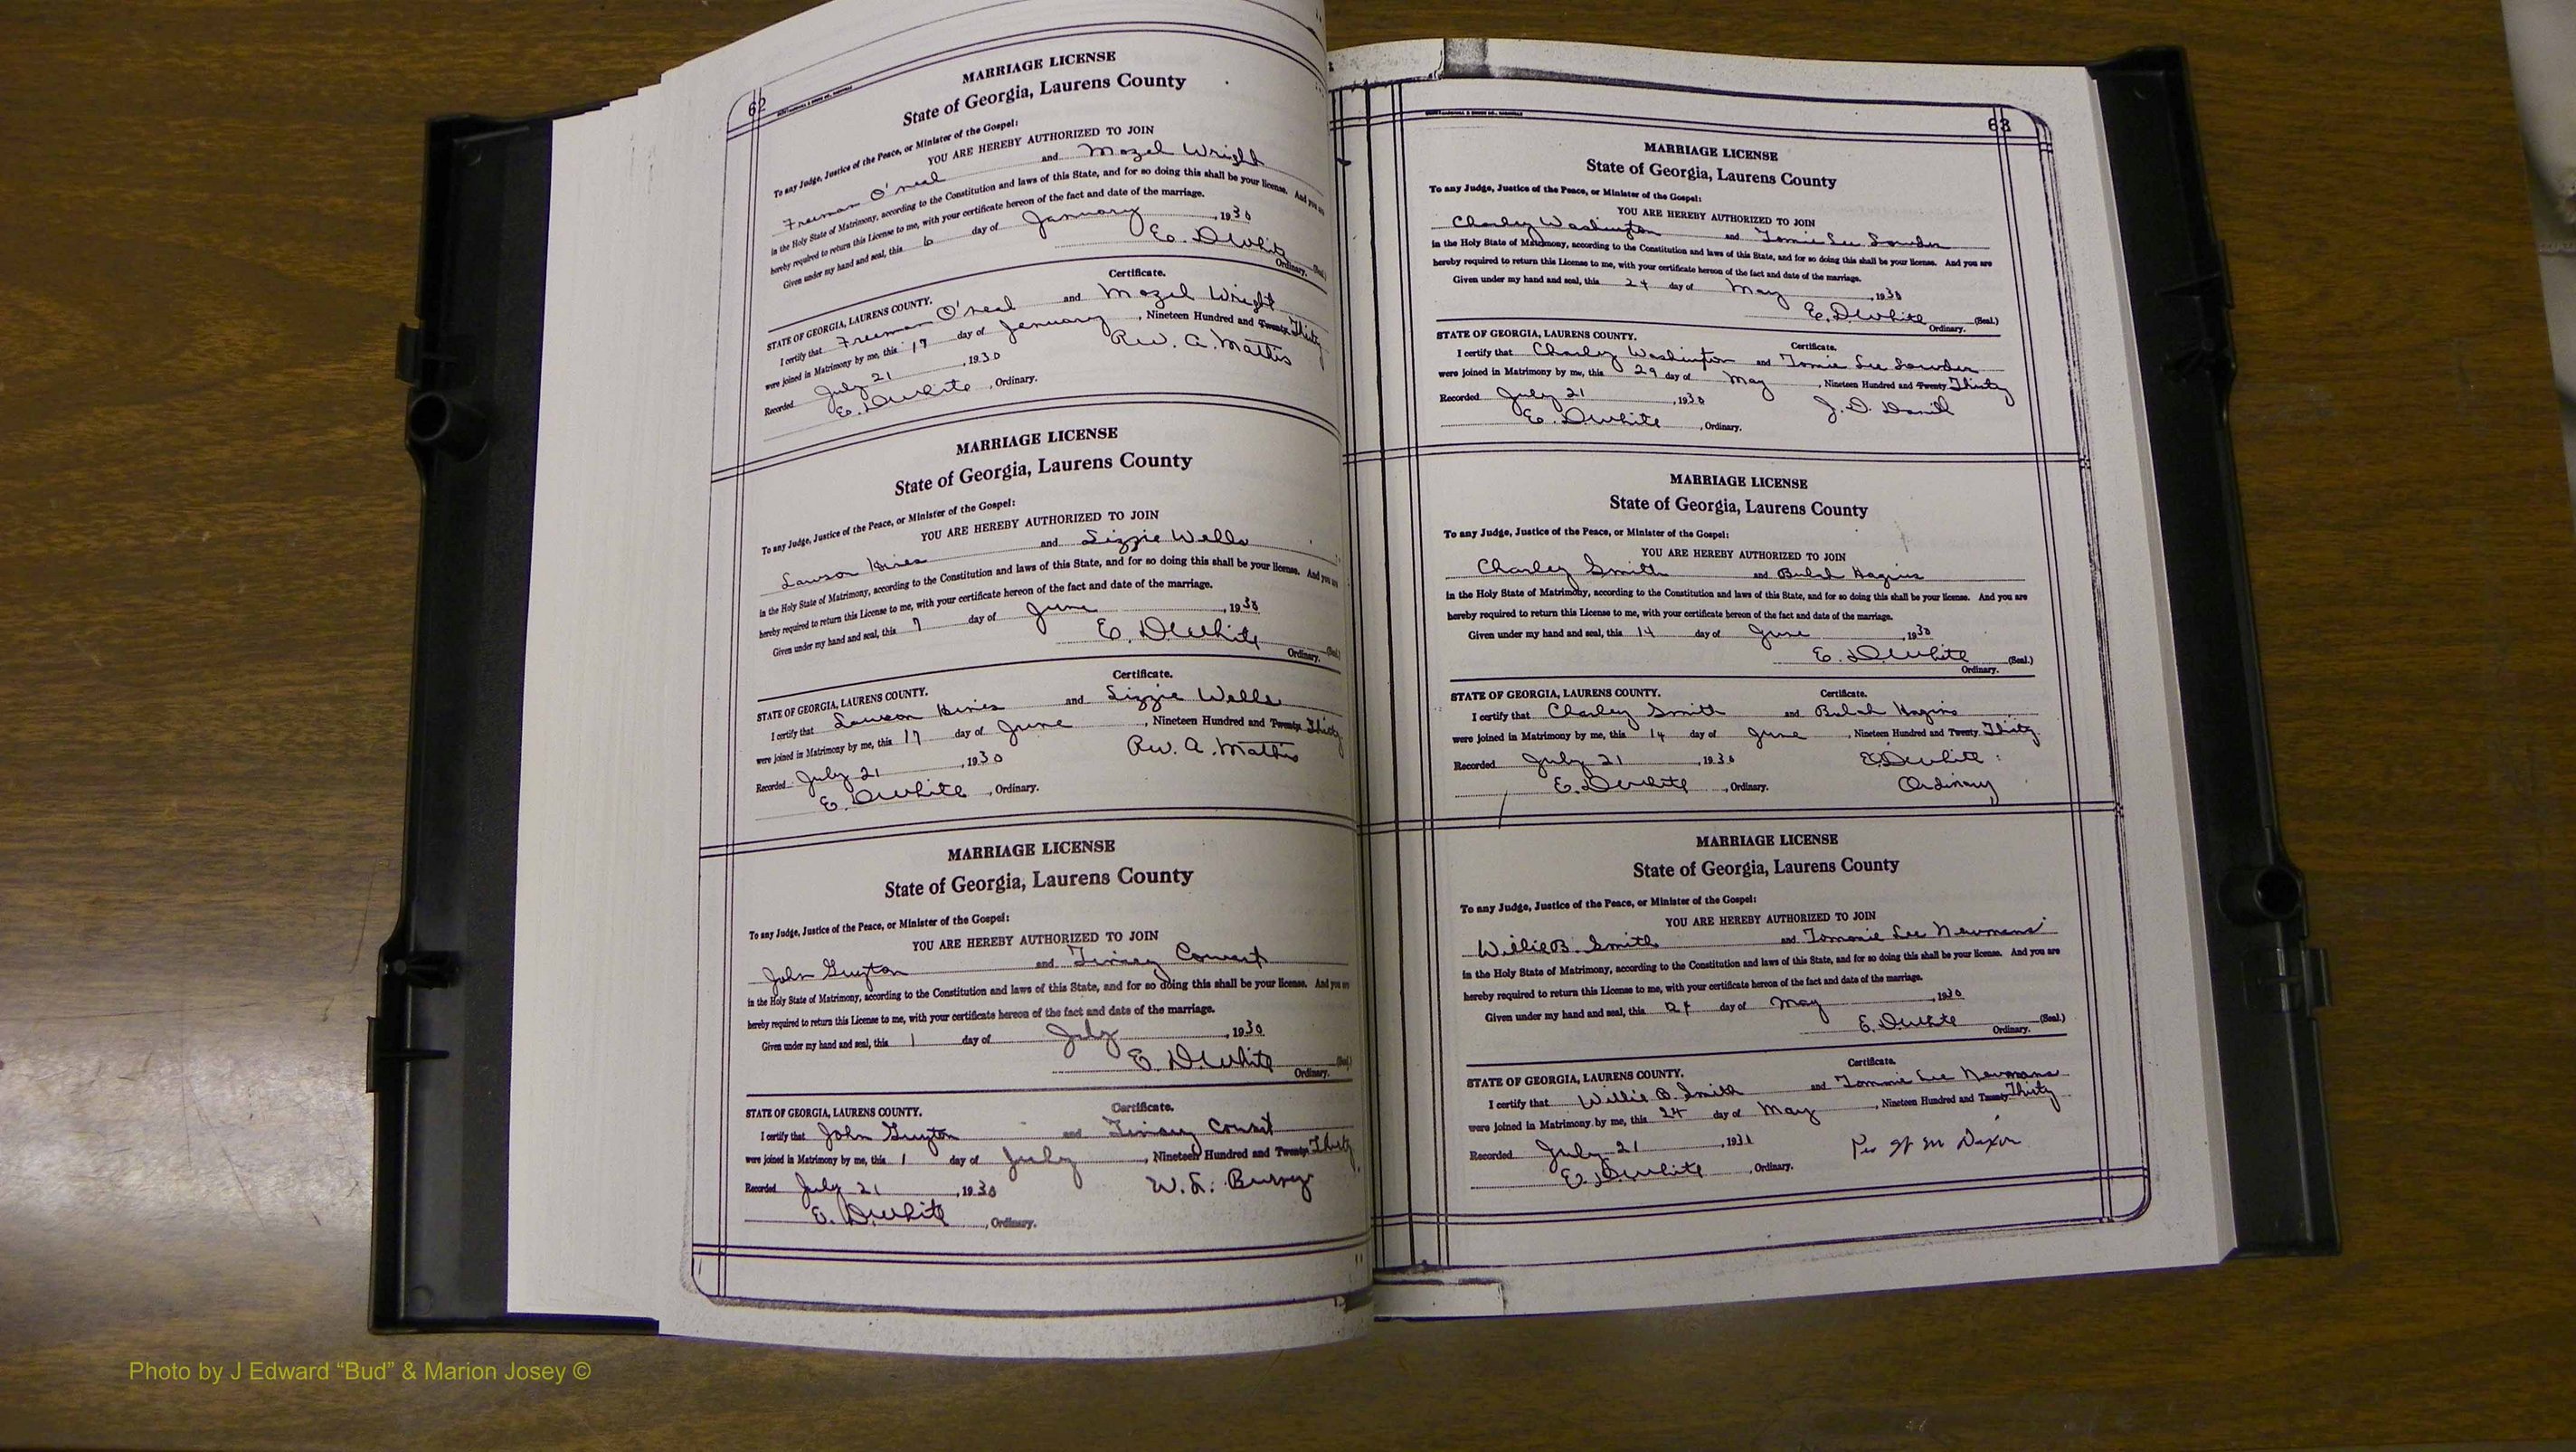 62
MARRIAGE LICENSE
State of Georgia, Laurens County
To any Judge, Justice of the Peace, or Minister of the Gospel:
YOU ARE HEREBY AUTHORIZED TO JOIN
Freeman O'neal and Mozel Wright
in the Holy State of Matrimony, according to the Constitution and laws of this State, and for so doing this shall be your license. And you are
hereby required to return this License to me, with your certificate hereon of the fact and date of the marriage.
Given under my hand and seal, this 6 day of January, 1930
E. D. White (Seal.)
Ordinary.
Certificate.
STATE OF GEORGIA, LAURENS COUNTY.
I certify that Freeman O'neal and Mozel Wright
were joined in Matrimony by me, this 17 day of January, Nineteen Hundred and Twenty Thirty
Recorded July 21, 1930 Rev. A. Mathis
E. D. White, Ordinary.
MARRIAGE LICENSE
State of Georgia, Laurens County
To any Judge, Justice of the Peace, or Minister of the Gospel:
YOU ARE HEREBY AUTHORIZED TO JOIN
Lawson Hines and Lizzie Wells
in the Holy State of Matrimony, according to the Constitution and laws of this State, and for so doing this shall be your license. And you are
hereby required to return this License to me, with your certificate hereon of the fact and date of the marriage.
Given under my hand and seal, this 7 day of June, 1930
E. D. White (Seal.)
Ordinary.
Certificate.
STATE OF GEORGIA, LAURENS COUNTY.
I certify that Lawson Hines and Lizzie Wells
were joined in Matrimony by me, this 17 day of June, Nineteen Hundred and Twenty Thirty
Recorded July 21, 1930 Rev. A. Mathis
E. D. White, Ordinary.
MARRIAGE LICENSE
State of Georgia, Laurens County
To any Judge, Justice of the Peace, or Minister of the Gospel:
YOU ARE HEREBY AUTHORIZED TO JOIN
John Guyton and
in the Holy State of Matrimony, according to the Constitution and laws of this State, and for so doing this shall be your license. And you are
hereby required to return this License to me, with your certificate hereon of the fact and date of the marriage.
Given under my hand and seal, this 1 day of July, 1930
E. D. White (Seal.)
Ordinary.
Certificate.
STATE OF GEORGIA, LAURENS COUNTY.
I certify that John Guyton and
were joined in Matrimony by me, this 1 day of July, Nineteen Hundred and Twenty Thirty
Recorded July 21, 1930 W.
E. D. White, Ordinary.
63
MARRIAGE LICENSE
State of Georgia, Laurens County
To any Judge, Justice of the Peace, or Minister of the Gospel:
YOU ARE HEREBY AUTHORIZED TO JOIN
Charley Washington and Tomie Lee
in the Holy State of Matrimony, according to the Constitution and laws of this State, and for so doing this shall be your license. And you are
hereby required to return this License to me, with your certificate hereon of the fact and date of the marriage.
Given under my hand and seal, this 24 day of May, 1930
E. D. White (Seal.)
Ordinary.
Certificate.
STATE OF GEORGIA, LAURENS COUNTY.
I certify that Charley Washington and Tomie Lee
were joined in Matrimony by me, this 29 day of May, Nineteen Hundred and Twenty Thirty
Recorded July 21, 1930 J. D.
E. D. White, Ordinary.
MARRIAGE LICENSE
State of Georgia, Laurens County
To any Judge, Justice of the Peace, or Minister of the Gospel:
YOU ARE HEREBY AUTHORIZED TO JOIN
Charley Smith and Bulah Hagins
in the Holy State of Matrimony, according to the Constitution and laws of this State, and for so doing this shall be your license. And you are
hereby required to return this License to me, with your certificate hereon of the fact and date of the marriage.
Given under my hand and seal, this 14 day of June, 1930
E. D. White (Seal.)
Ordinary.
Certificate.
STATE OF GEORGIA, LAURENS COUNTY.
I certify that Charley Smith and Bulah Hagins
were joined in Matrimony by me, this 14 day of June, Nineteen Hundred and Twenty Thirty
Recorded July 21, 1930 E. D. White
E. D. White, Ordinary. Ordinary
MARRIAGE LICENSE
State of Georgia, Laurens County
To any Judge, Justice of the Peace, or Minister of the Gospel:
YOU ARE HEREBY AUTHORIZED TO JOIN
Willie B. Smith and Tommie Lee Newmans
in the Holy State of Matrimony, according to the Constitution and laws of this State, and for so doing this shall be your license. And you are
hereby required to return this License to me, with your certificate hereon of the fact and date of the marriage.
Given under my hand and seal, this 24 day of May, 1930
E. D. White (Seal.)
Ordinary.
Certificate.
STATE OF GEORGIA, LAURENS COUNTY.
I certify that Willie B. Smith and Tommie Lee Newmans
were joined in Matrimony by me, this 24 day of May, Nineteen Hundred and Twenty Thirty
Recorded July 21, 193
E. D. White, Ordinary.
Photo by J Edward “Bud” & Marion Josey ©